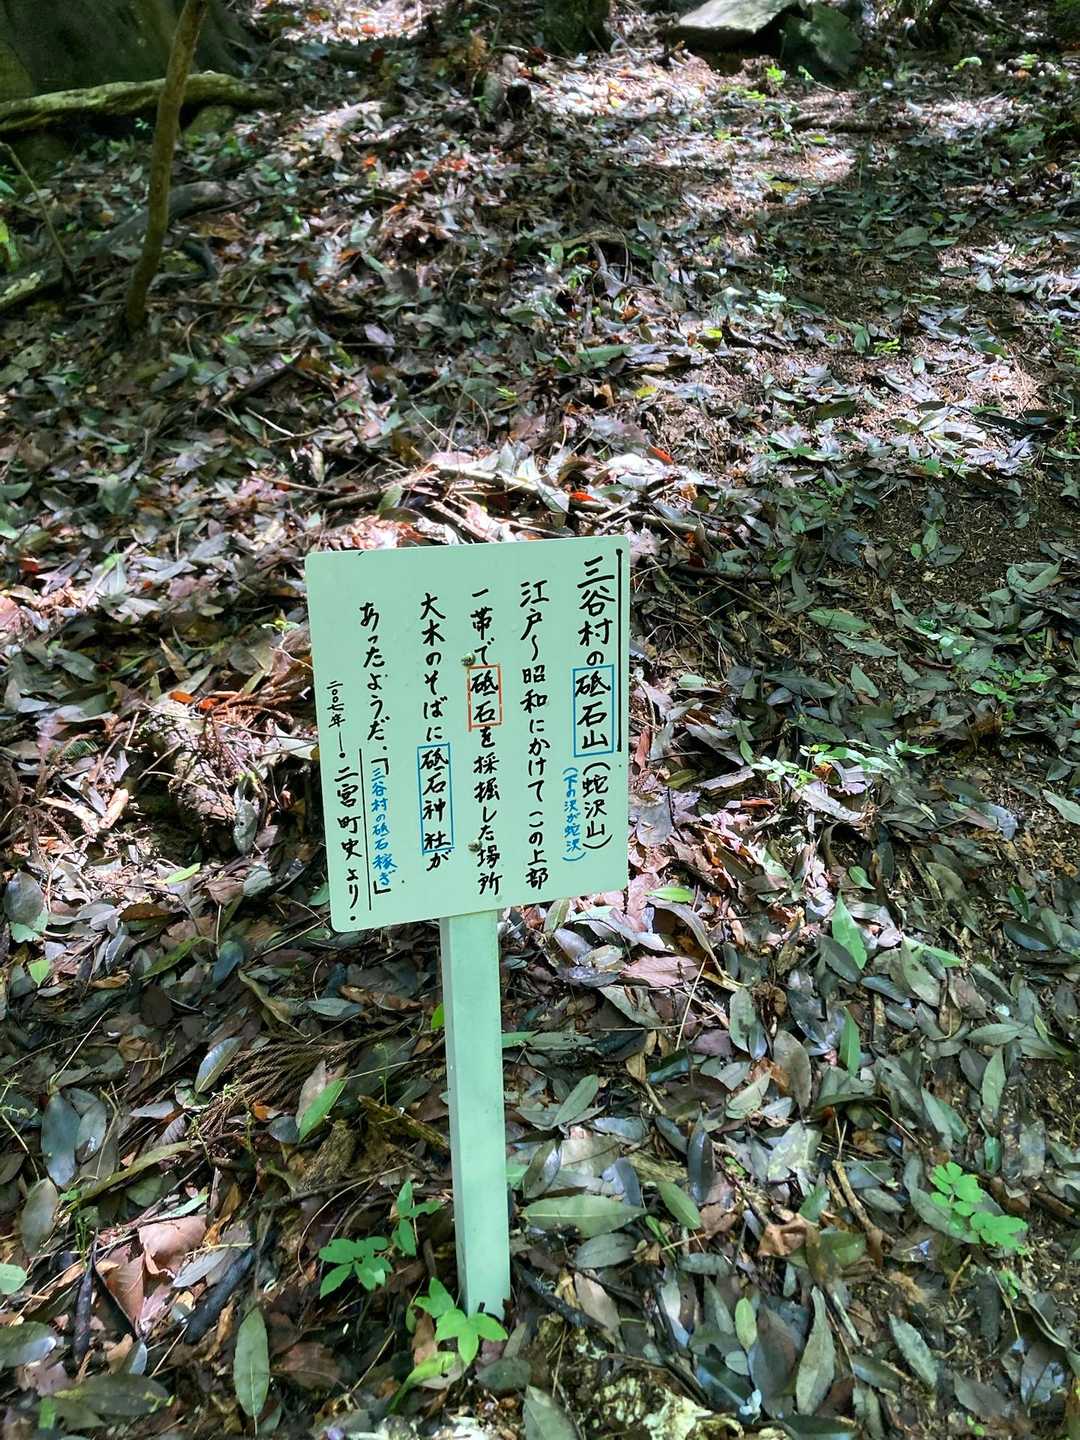 三谷村の砥石山(蛇沢山)
(下の沢が蛇沢)
江戸〜昭和にかけてこの上部
一帯で砥石を採掘した場所
大木のそばに砥石神社が
あったようだ、「三谷村の砥石稼ぎ」
二〇〇七年ー・二宮町史より・